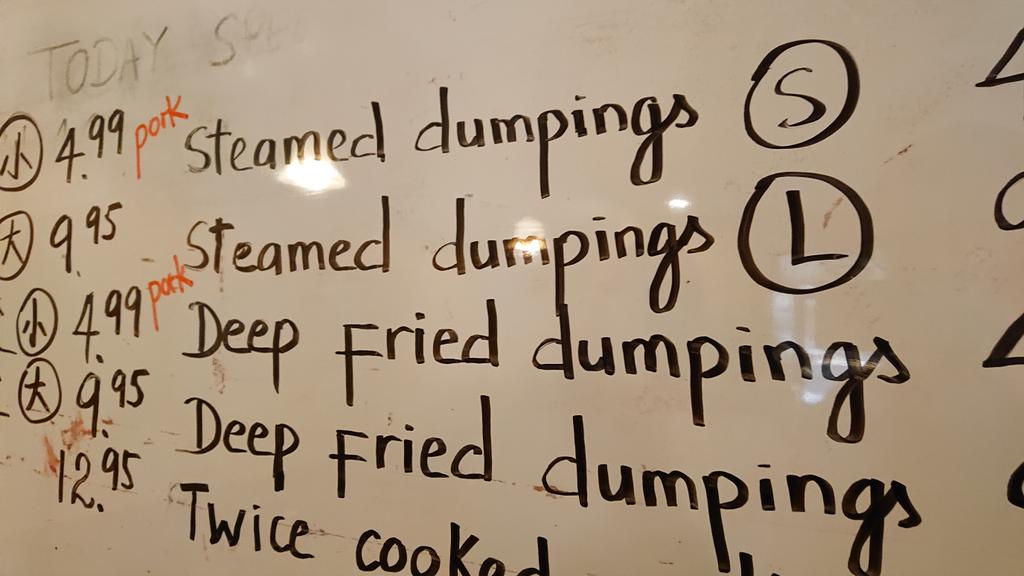 TODAY
小 4.99 pork Steamed dumpings S
大 9.95 Steamed dumpings L
小 4.99 pork Deep Fried dumpings
大 9.95 Deep Fried dumpings
12.95 Twice cooked